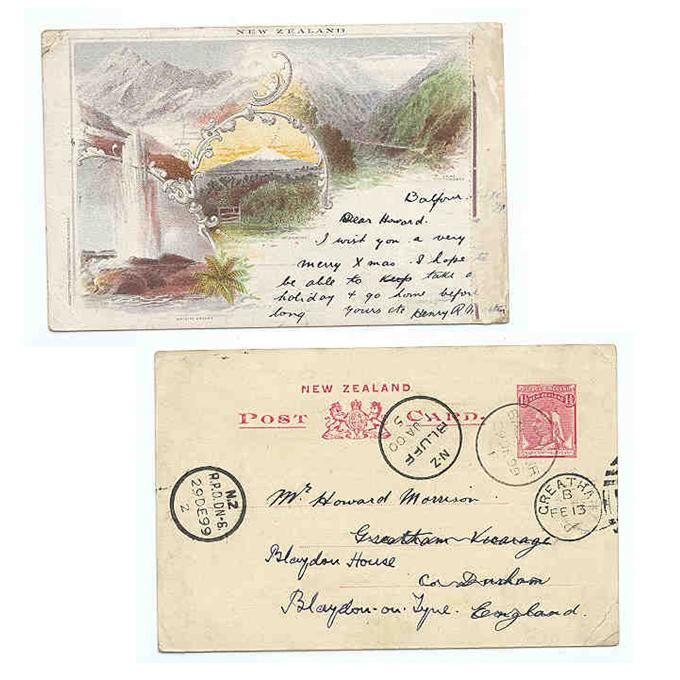 NEW ZEALAND
Balfour.
Dear Howard.
I wish you a very
merry Xmas. I hope
be able to keep take a
holiday & go home before
long Yours etc Henry R M
NEW ZEALAND
POST CARD.
1½ 1½
N.Z
BLUFF
JA 00
5
GREATHAM
B
FE 13
N.Z
R.P.O.DN-6.
29DE99
2
Mr Howard Morrison.
Greatham Vicarage
Blaydon House
Co Durham
Blaydon-on-Tyne. England.